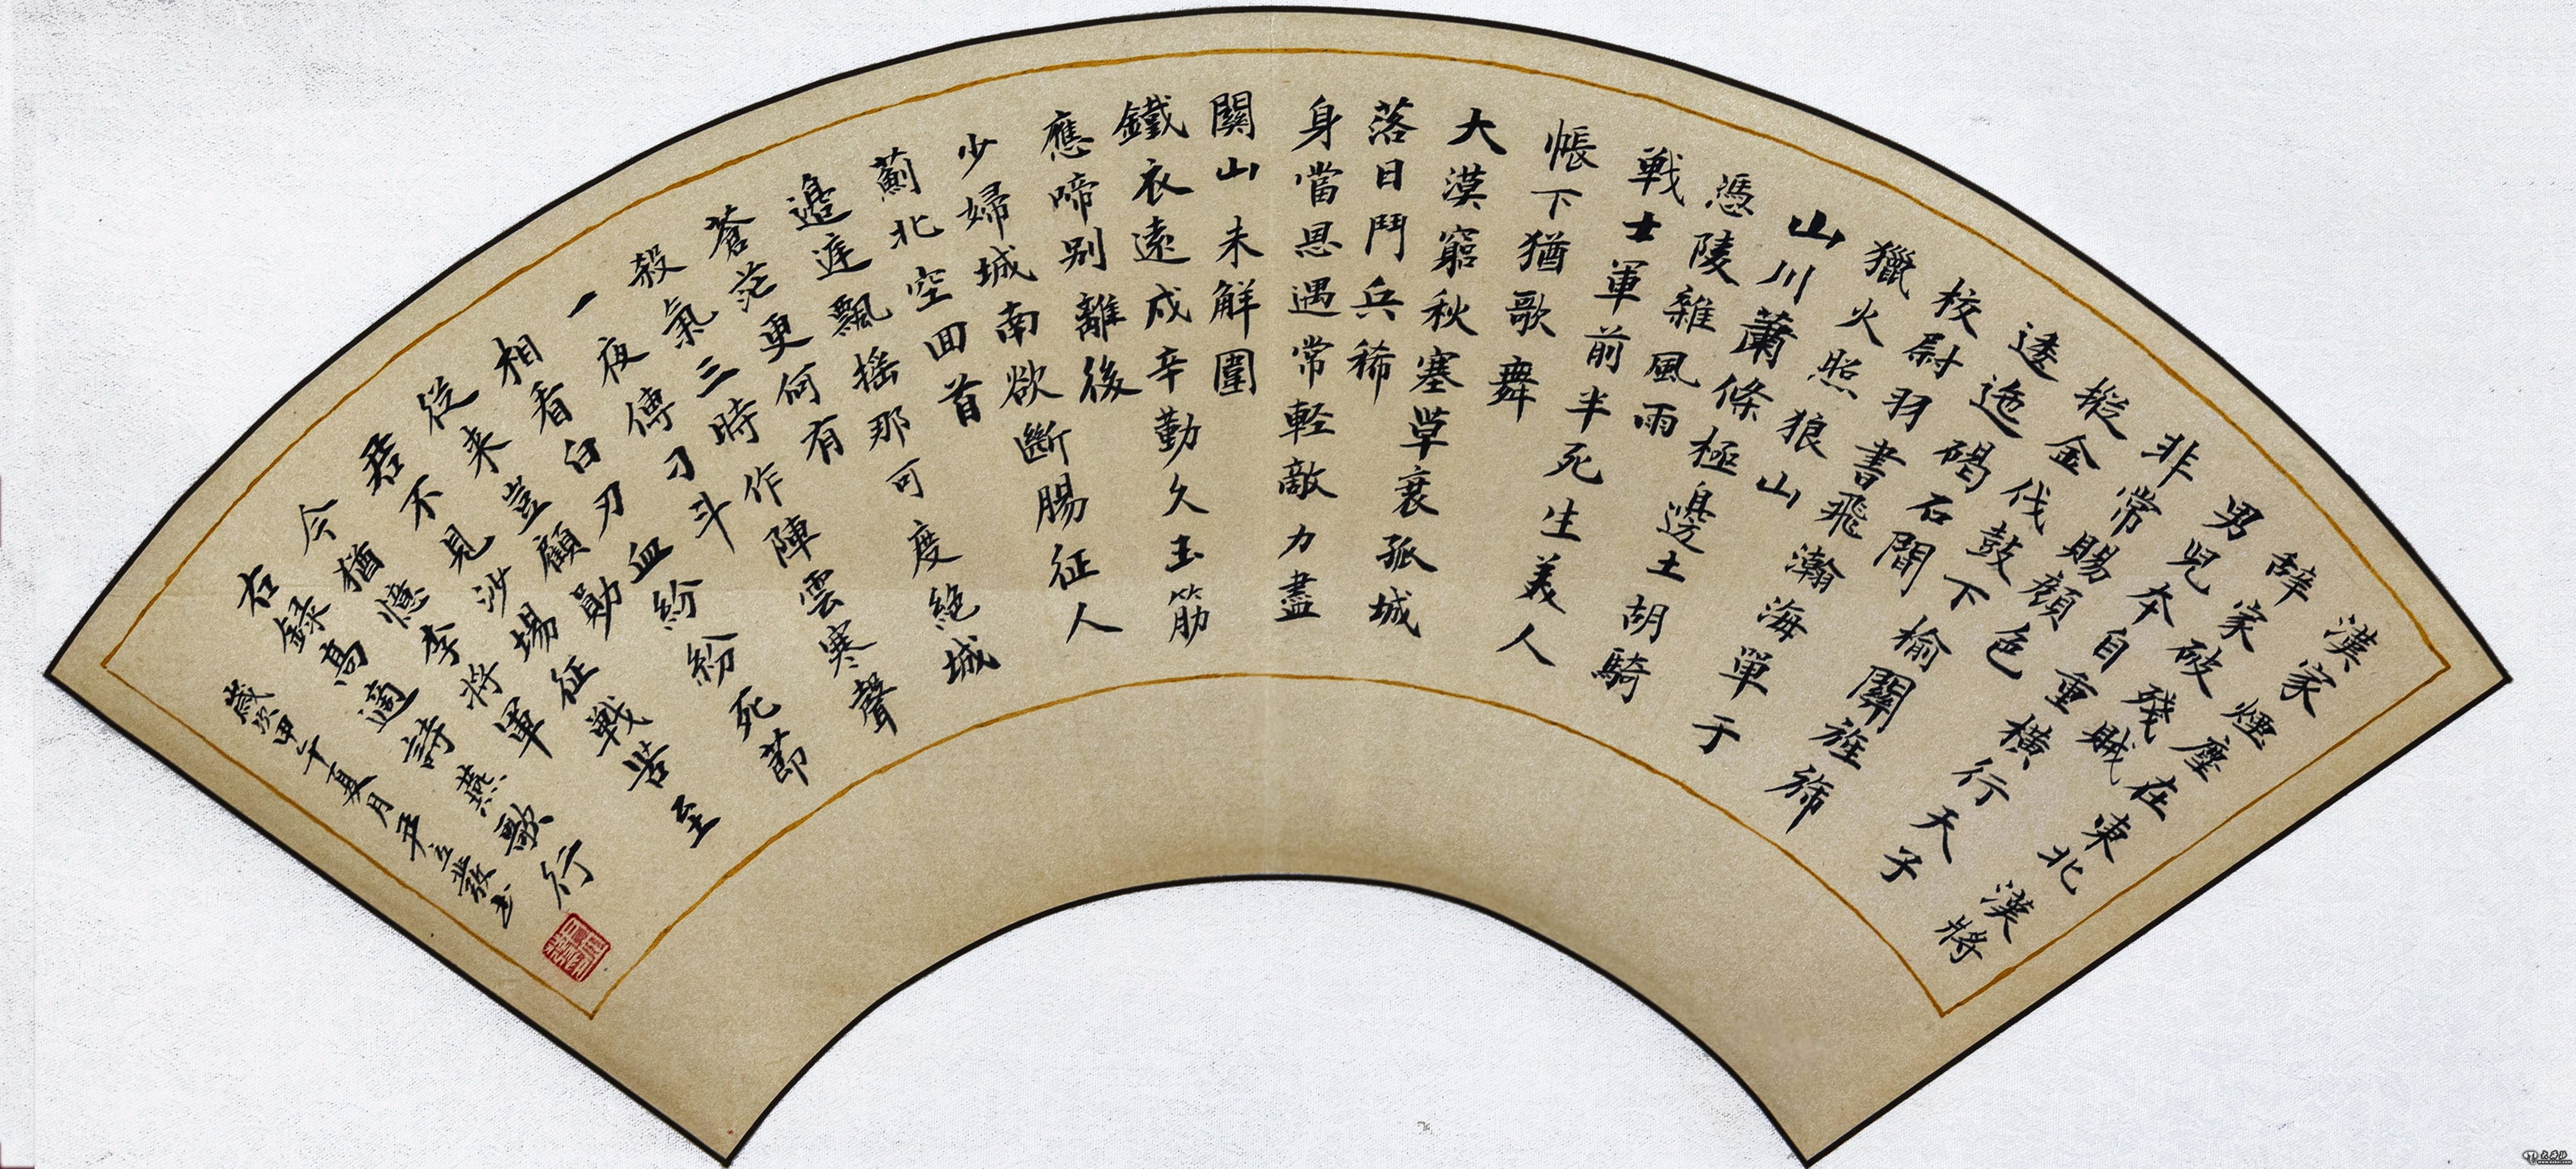 漢家煙塵在東北漢將
辭家破殘賊
男兒本自重橫行天子
非常賜顏色
摐金伐鼓下榆關旌旆
逶迤碣石間
校尉羽書飛瀚海單于
獵火照狼山
山川蕭條極邊土胡騎
憑陵雜風雨
戦士軍前半死生美人
帳下猶歌舞
大漠窮秋塞草衰孤城
落日鬥兵稀
身當恩遇常軽敵力盡
關山未解圍
鐵衣遠戍辛勤久玉筋
應啼别離後
少婦城南欲斷腸征人
薊北空囬首
邊庭飄摇那可度絕域
蒼茫更何有
殺氣三時作陣雲寒聲
一夜傳刁斗
相看白刃血紛紛死節
從来豈顧勛
君不見沙場征戦苦至
今猶憶李將軍
右録高適詩燕歌行
歲次甲午夏月敬書